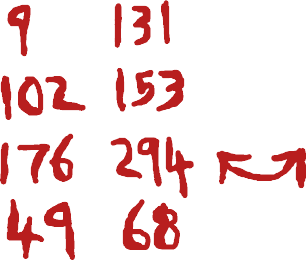 9 131
102 153
176 294
49 68